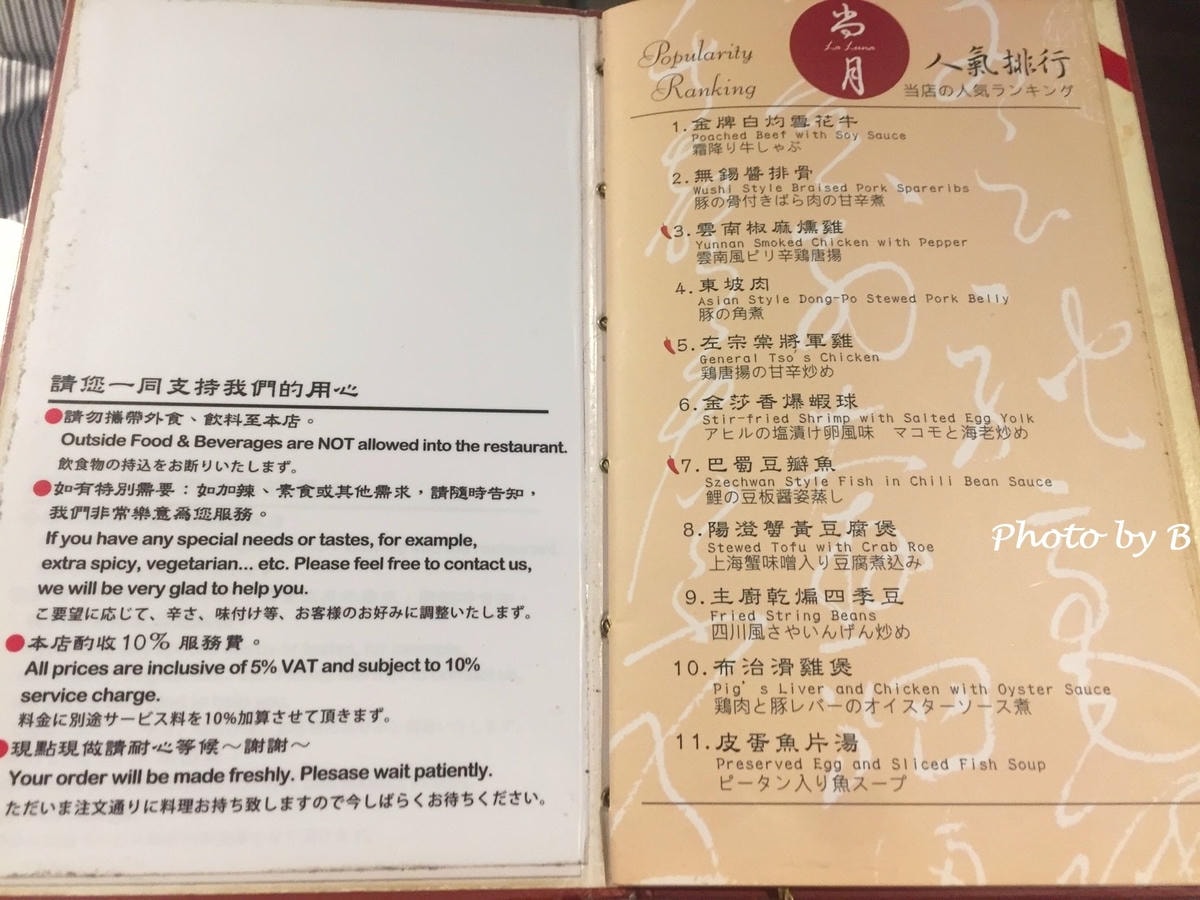 請您一同支持我們的用心
請勿攜帶外食、飲料至本店。
Outside Food & Beverages are NOT allowed into the restaurant.
飲食物の持込をお断りいたしまず。
如有特別需要：如加辣、素食或其他需求，請隨時告知，
我們非常樂意為您服務。
If you have any special needs or tastes, for example,
extra spicy, vegetarian... etc. Please feel free to contact us,
we will be very glad to help you.
こ要望に応じて、辛さ、味付け等、お客様のお好みに調整いたしまず。
本店酌收10% 服務費。
All prices are inclusive of 5% VAT and subject to 10%
service charge.
料金に別途サービス料を10%加算させて頂きまず。
現點現做請耐心等候～謝謝～
Your order will be made freshly. Plesase wait patiently.
ただいま注文通りに料理お持ち致しますので今しばらくお待ちください。
Popularity
Ranking
尚
La Luna
月
人氣排行
当店の人気ランキング
1. 金牌白灼雪花牛
Poached Beef with Soy Sauce
霜降り牛しゃぶ
2. 無錫醬排骨
Wushi Style Braised Pork Spareribs
豚の骨付きばら肉の甘辛煮
3. 雲南椒麻燻雞
Yunnan Smoked Chicken with Pepper
雲南風ピリ辛鶏唐揚
4. 東坡肉
Asian Style Dong-Po Stewed Pork Belly
豚の角煮
5. 左宗棠將軍雞
General Tso's Chicken
鶏唐揚の甘辛炒め
6. 金莎香爆蝦球
Stir-fried Shrimp with Salted Egg Yolk
アヒルの塩漬け卵風味 マコモと海老炒め
7. 巴蜀豆瓣魚
Szechwan Style Fish in Chili Bean Sauce
鯉の豆板醤姿蒸し
8. 陽澄蟹黃豆腐煲
Stewed Tofu with Crab Roe
上海蟹味噌入り豆腐煮込み
9. 主廚乾煸四季豆
Fried String Beans
四川風さやいんげん炒め
10. 布治滑雞煲
Pig's Liver and Chicken with Oyster Sauce
鶏肉と豚レバーのオイスターソース煮
11. 皮蛋魚片湯
Preserved Egg and Sliced Fish Soup
ピータン入り魚スープ
Photo by B